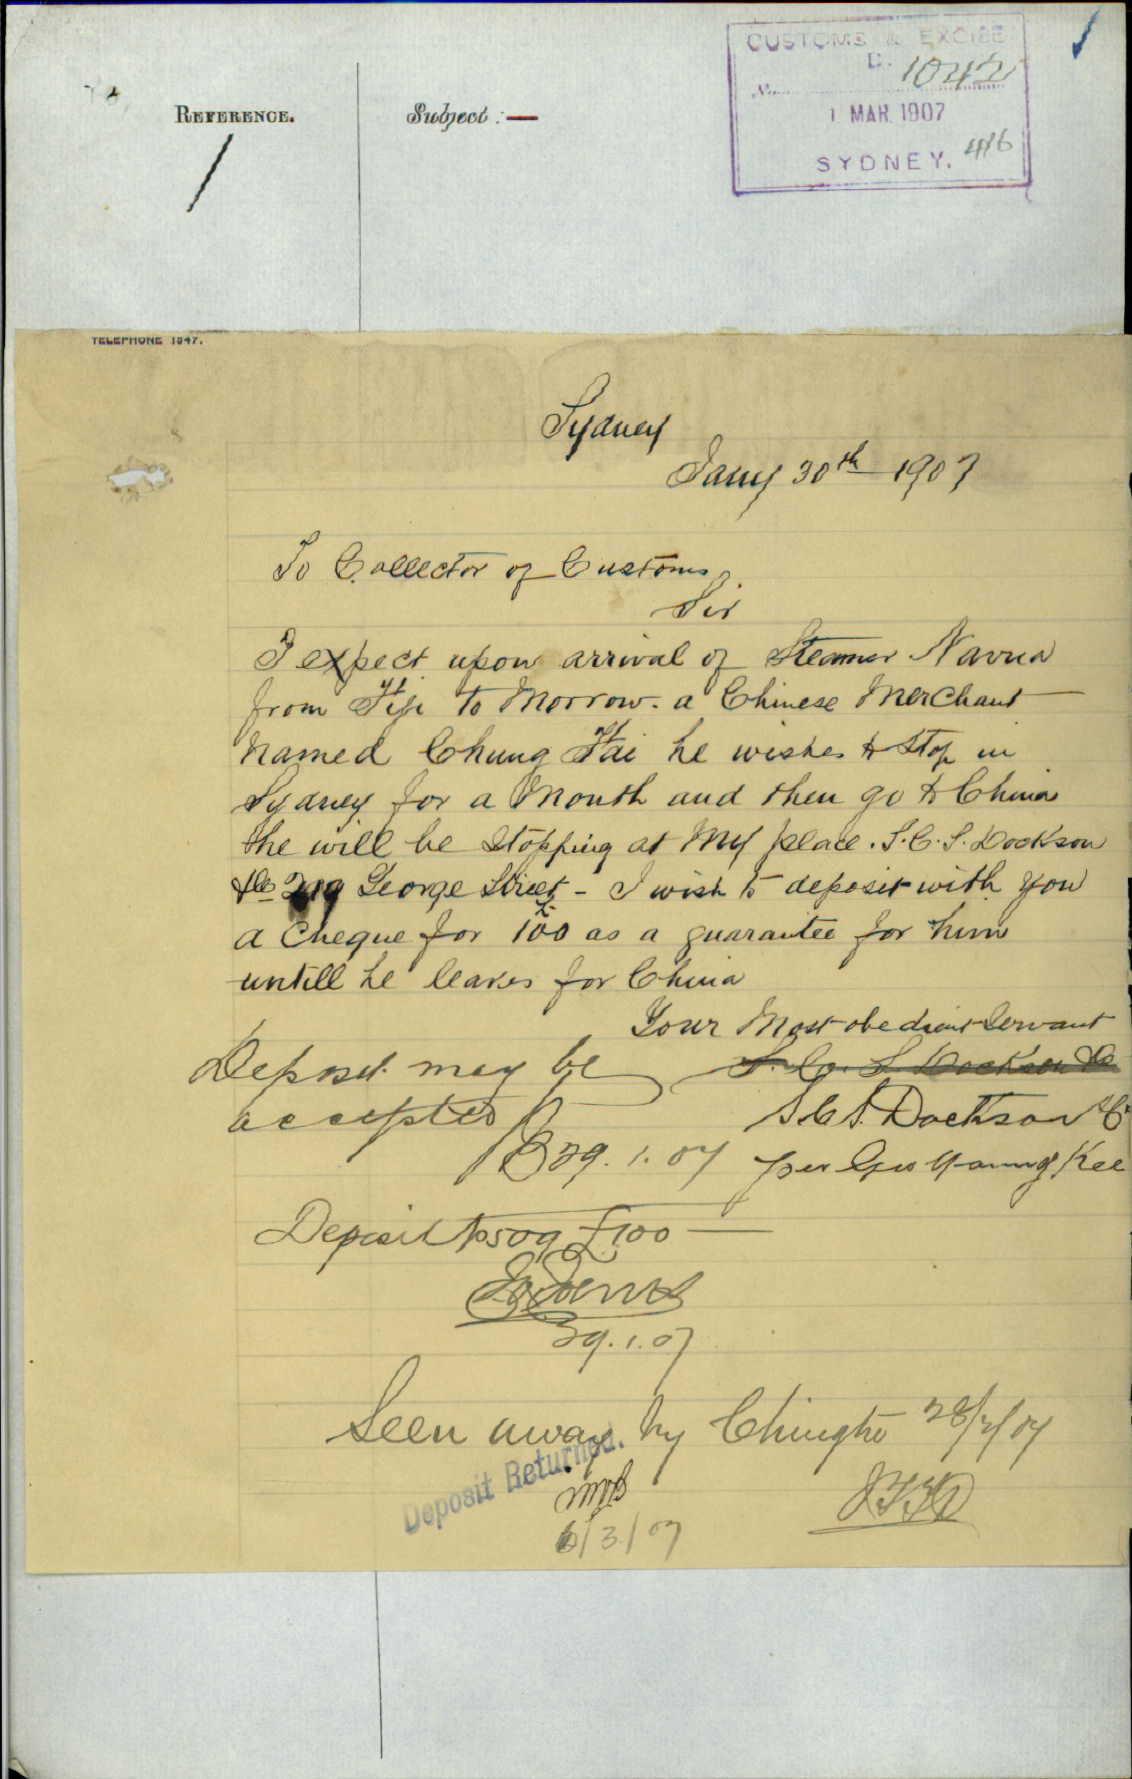 CUSTOMS & EXCISE
D. 1042
No.
1 MAR. 1907
SYDNEY. 416
REFERENCE.
Subject :—
TELEPHONE 1847.
Sydney
Jany 30th 1907
To Collector of Customs
Sir
I expect upon arrival of Steamer Navua
from Fiji to Morrow. a Chinese Merchant
Named Chung Tai he wishes to stop in
Sydney for a Month and then go to China
the will be Stopping at My place. S.C.S. Dockson
& Co 219 George Street - I wish to deposit with you
a Cheque for £100 as a guarantee for him
untill he leaves for China
Your Most obedient Servant
Deposit may be
accepted
S.C.S. Dockson & Co
29.1.07
per Geo Young Kee
Deposit No 509 £100
29.1.07
Seen away by Chingtu 28/2/07
Deposit Returned.
6/3/07